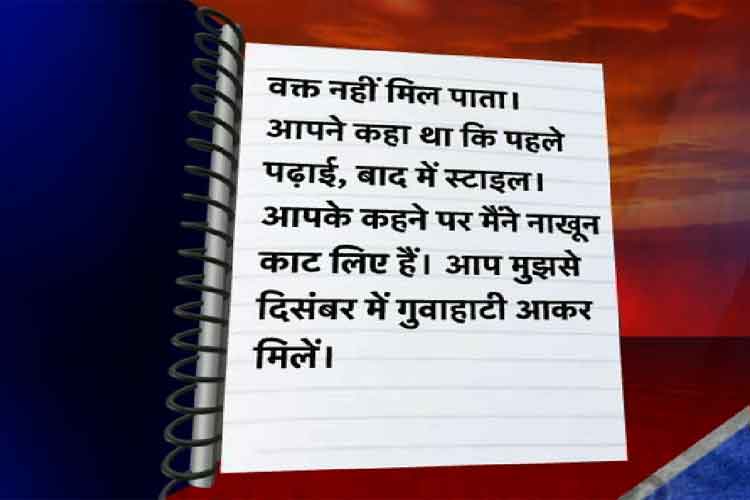 वक्त नहीं मिल पाता।
आपने कहा था कि पहले
पढ़ाई, बाद में स्टाइल।
आपके कहने पर मैंने नाखून
काट लिए हैं। आप मुझसे
दिसंबर में गुवाहाटी आकर
मिलें।